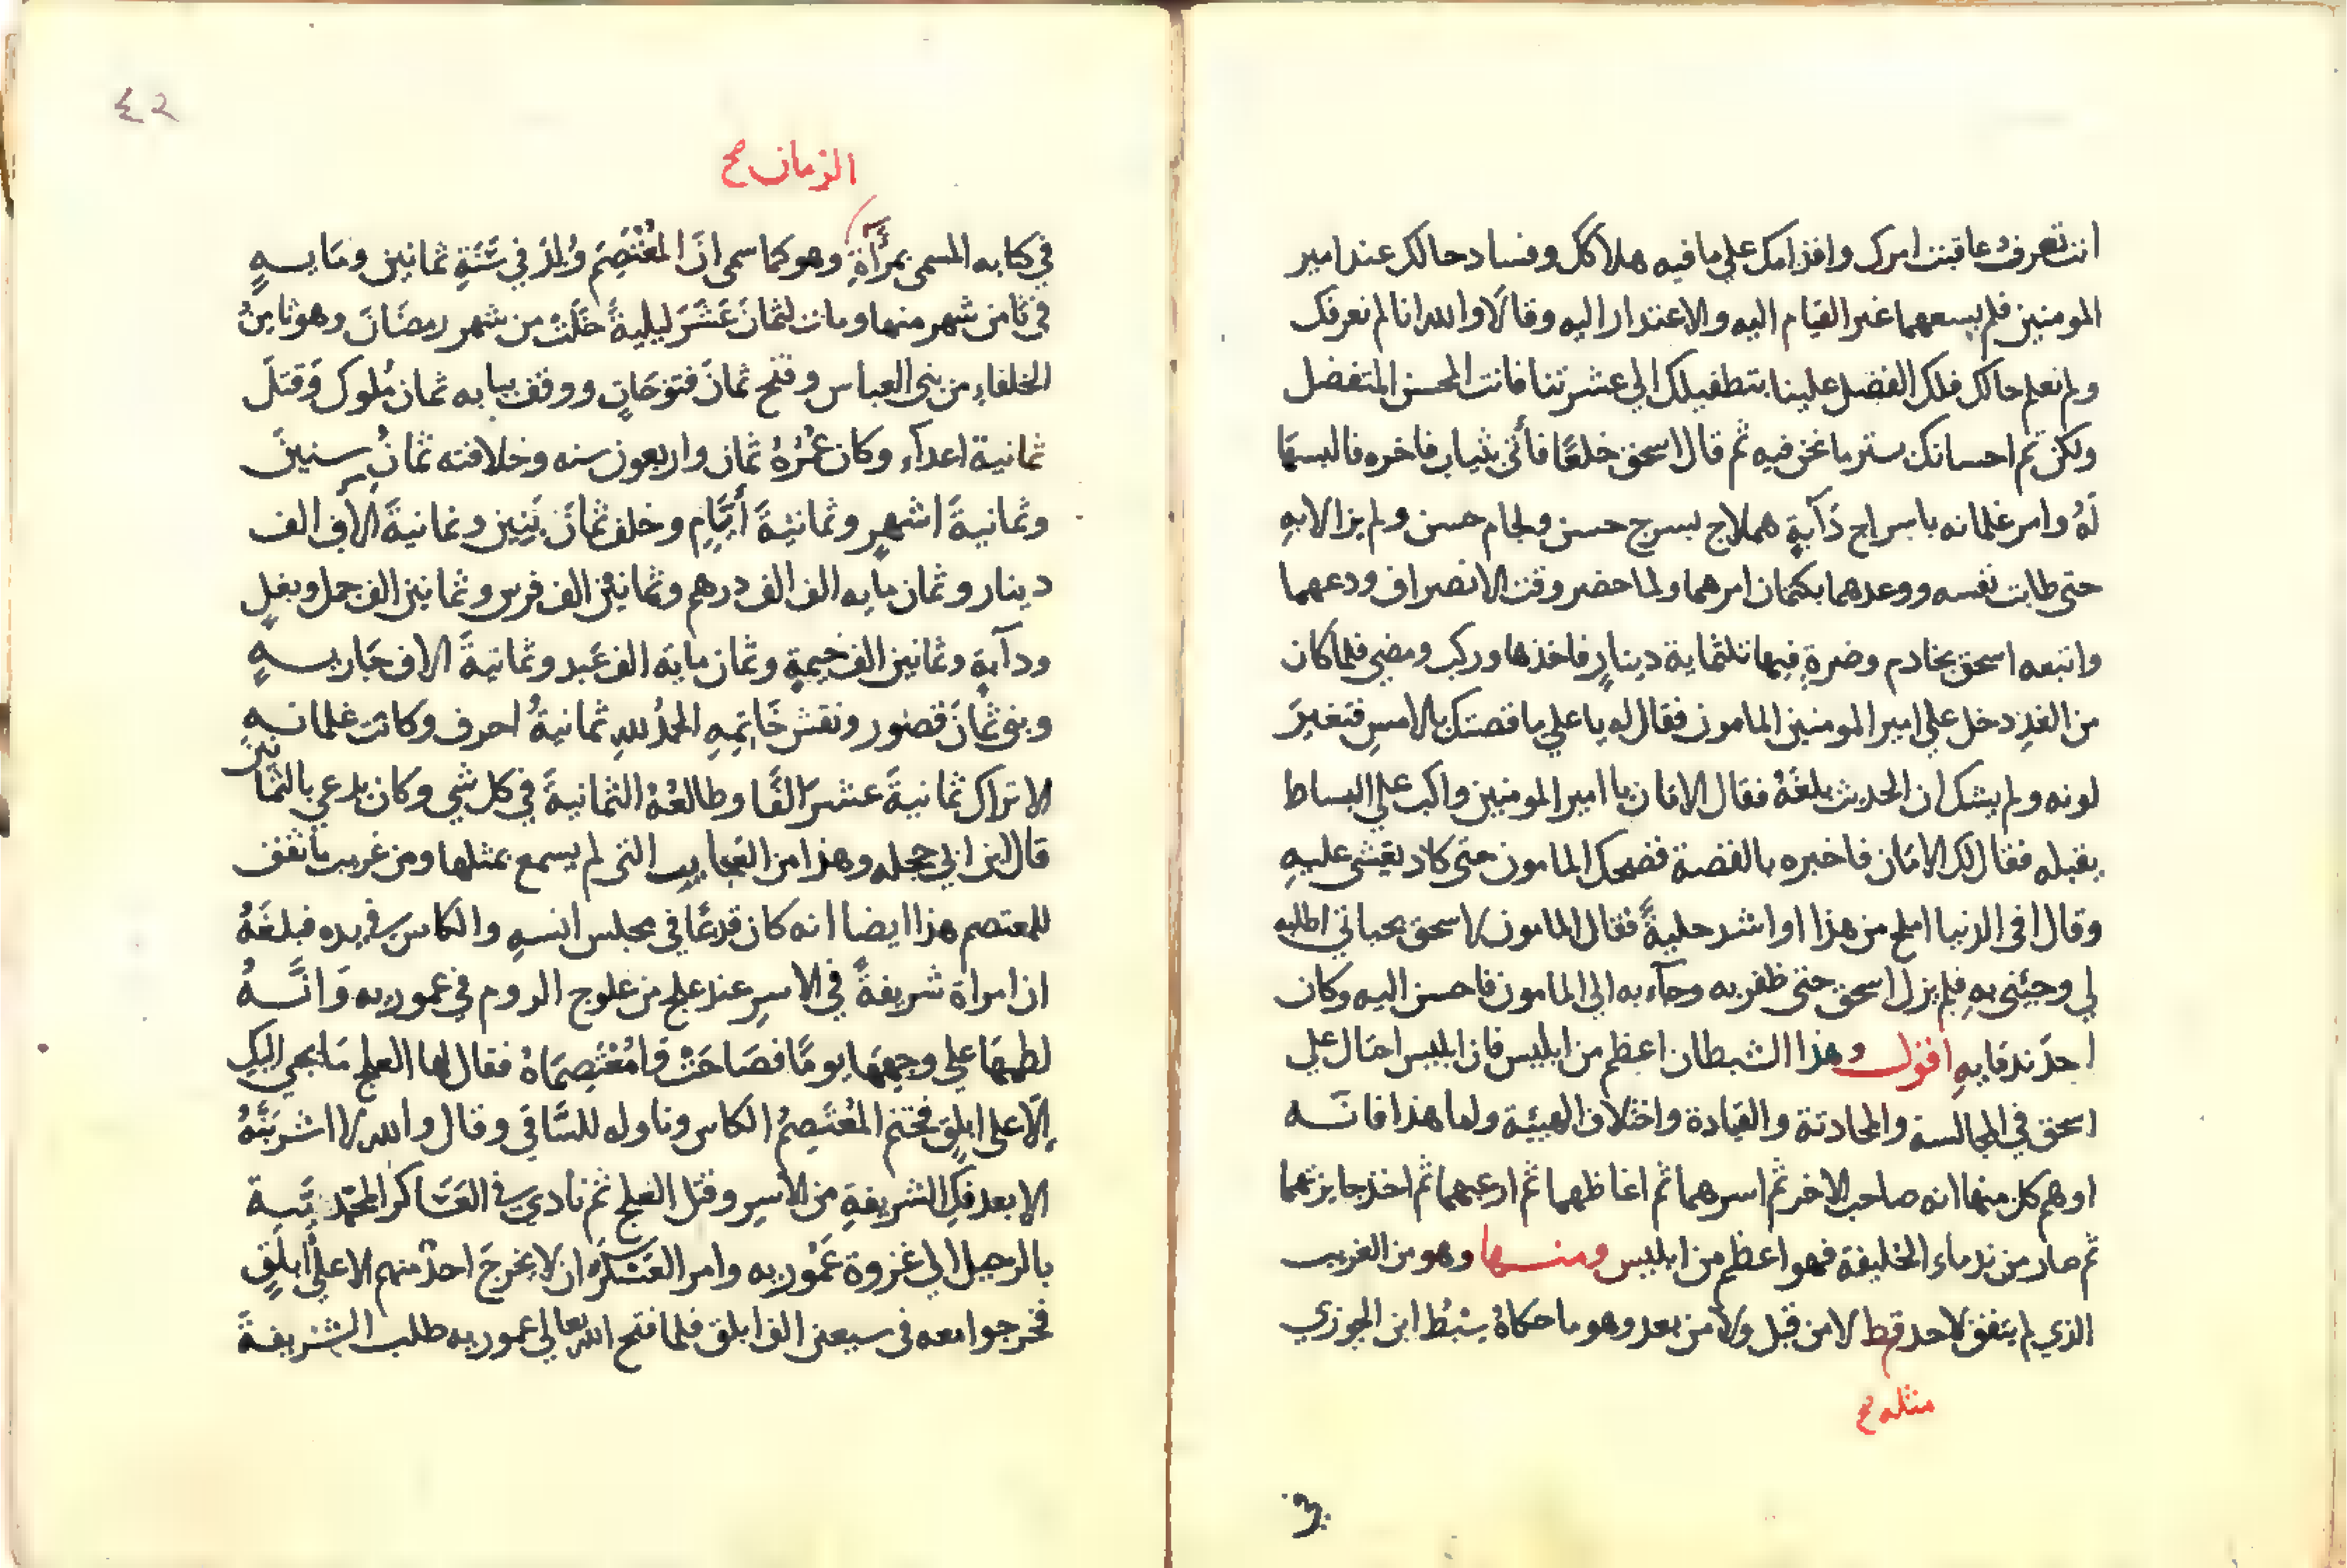 انت تعرف عاقبت امرك واقدامك علي ما فيه هلاكك وفساد حالك عند امير
المومنين فلم يسعهما غير القيام اليه والاعتذار اليه وقالا والله انا لم نعرفك
ولم نعلم حالك فلك الفضل علينا بتطفيلك الي عشرتنا فانت المحسن المتفضل
ولكن تم احسانك بستر ما نحن فيه ثم قال اسحق خلعًا فأتي بثياب فاخره فالبسها
لَهُ وامر غلمانه باسراج دَآبةٍ هملاج بسرج حسن ولجام حسن ولم يزالا بهِ
حتي طابت نفسه ووعدهما بكتمان امرهما ولما حضر وقت الانصراف ودعهما
واتبعه اسحق بخادم وصرةٍ فيها ثلثماية دينارٍ فاخذها وركب ومضي فلما كان
من الغدِ دخل علي امير المومنين المامون فقال له يا علي ما قصتك بالامسِ فتغيرَ
لونه ولم يشك ان الحديث بلغَهُ فقال الامان يا امير المومنين واكب علي البساط
يقبله فقال لك الامَان فاخبره بالقصة فضحك المامون حتي كاد يغشي عليهِ
وقال افي الدنيا املح من هذا او اشد حليةً فقال المامون لاسحق بحياتي اطلبه
لي وجيني بهِ فلم يزل اسحق حتي ظفر به وجآء به الي المامون فاحسن اليه وكان
احدَ ندمايهِ اقول وهذا الشيطان اعظم من ابليس فان ابليس احتال علي
اسحق في المجالسة والمحادثة والقيادة واختلاف الهيئة واما هذا فانَّه
اوهم كل منهما انه صاحب الاخر ثم اسرهما ثم اغاظهما ثم ارعبهما ثم اخذ جايزتهما
ثم صار من ندماء الخليفة فهو اعظم من ابليس ومنها وهو من الغريب
الذي لم يتفق لاحد قط لا من قبل ولا من بعد وهو ما حكاهُ سِبْطُ ابن الجوزي
مثله صح
في
٤٢
الزمان صح
في كتابه المسمي بمرآةِ وهو كما سمي انَّ المُعْتَصِمَ وُلِدَ في سَنَةِ ثمانين ومَايةٍ
في ثامن شهر منها ومات لثمانَ عَشَرَ ليليةً خَلَتْ من شهر رمضَانَ وهو ثامِنُ
الخلفاءِ من بني العباس وفتح ثمانَ فتوحَاتٍ ووقف ببابه ثمان مُلوك وَقتلَ
ثمانية اعداء وكان عُمُرُهُ ثمان واربعون سنه وخلافته ثمانُ سنينَ
وثمانيةَ اشهرٍ وثمانيَةَ أيَّامٍ وخلف ثمانَ بَنِين وثمانيةَ الافِ الف
دينار وثمان مايه الف الف درهم وثمانين الف فرس وثمانين الف جمل وبغلٍ
ودآبةٍ وثمانين الف خيمةٍ وثمان ماية الف عَبد وثمانيةَ الاف جَاريةٍ
وبني ثمانَ قصُور ونقش خَاتِمِهِ الحمدُ للهِ ثمانيةُ احرف وكانت غلمانهِ
الاتراك ثمانيةَ عشرَ الفًا وطالعُهُ الثمانيةَ في كل شي وكان يدعي بالثمانين
قال ابن ابي حجله وهذا من العجايب التي لم يسمع بمثلها ومن غريب ما اتفق
للمعتصم هذا ايضا انه كان قدعًا في مجلس انسهِ والكاس في يده فبلغَهُ
ان امراة شريفةً في الاسرِ عند علج من علوج الروم في عموريه وَانَّهُ
لطمهَا علي وجهِهَا يومًا فصَاحَتْ وَامُعْتَصِمَاهْ فقال لها العلج مَا يجي اليكِ
إلّا علي ابلق فختم المُعْتَصِمُ الكاس وناوله للسَّاقي وقال والله لا اشربَنَّهُ
الا بعد فكِ الشريفةِ من الاسر وقتل العلج ثم نادي في العَسَاكر المحمديَّة
بالرحيل الي غزوة عَمُّوريه وامر العَسْكَرَ ان لا يخرجَ احدٌ منهم الا علي ابلَقٍ
فخرجوا معه في سبعين الف ابلق فلما فتح الله تعالي عموريه طلب الشريفةَ